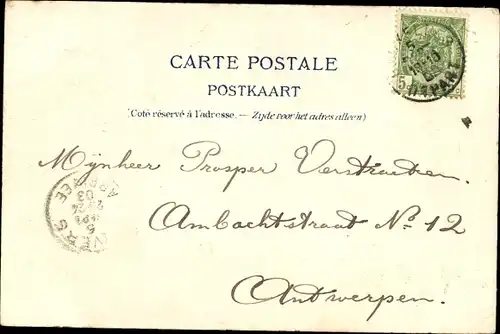 CARTE POSTALE
POSTKAART
(Coté réservé à l'adresse. — Zijde voor het adres alleen)
5
DEPART
Mÿnheer Prosper Verstraeten.
Ambachtstraat No 12
Antwerpen.
ARRIVEE
03
5